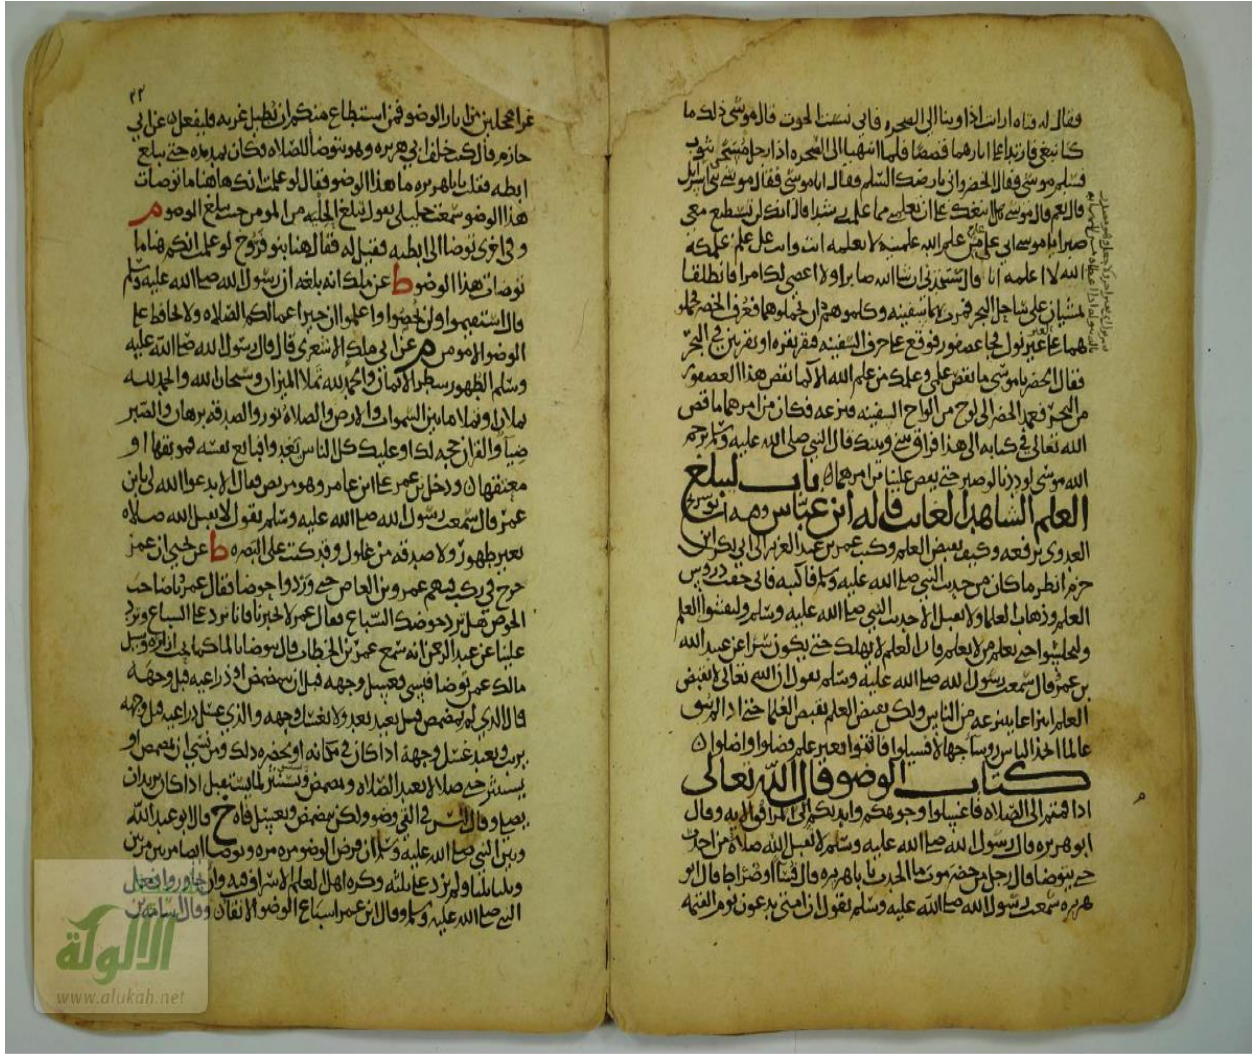 فقال له فتاه ارايت اذ اوينا الى الصخره فاني نسيت الحوت قال موسى ذلك ما
كنا نبغي فارتدا على اثارهما قصصا فلما انتهيا الى الصخره اذا رجل مسجى بثوب
فسلم موسى فقال الخضر وانى بارضك السلم فقال انا موسى فقال موسى بني اسرايل
قال نعم قال موسى هل اتبعك على ان تعلمني مما علمت رشدا قال انك لن تستطيع معي
صبرا يا موسى اني على علم من علم الله علمنيه لا تعلمه انت وانت على علم علمكه
الله لا اعلمه انا قال ستجدني ان شا الله صابرا ولا اعصي لك امرا فانطلقا
يمشيان على ساحل البحر فمرت بهما سفينه وكلموهم ان يحملوهما فعرف الخضر فحملو
هما على غير نول فجا عصفور فوقع على حرف السفينه فنقر نقره او نقرتين في البحر
فقال الخضر يا موسى ما نقص علمي وعلمك من علم الله الا كما نقص هذا العصفور
من البحر فعمد الخضر الى لوح من الواح السفينه فنزعه فكان من امرهما ما قص
الله تعالى في كتابه الى هذا فراق بيني وبينك قال النبي صلى الله عليه وسلم يرحم
الله موسى لوددنا لو صبر حتى يقص علينا من امرهما باب ليبلغ
العلم الشاهد الغايب قاله ابن عباس وهـ ابو شريح
العدوي يرفعه وكيف يقبض العلم وكتب عمر بن عبد العزيز الى ابي بكر ابن
حزم انظر ما كان من حديث النبي صلى الله عليه وسلم فاكتبه فاني خفت دروس
العلم وذهاب العلما ولا يقبل الا حديث النبي صلى الله عليه وسلم وليفشوا العلم
وليجلسوا حتى يعلم من لا يعلم فان العلم لا يهلك حتى يكون سرا عن عبد الله
بن عمرو قال سمعت رسول الله صلى الله عليه وسلم يقول ان الله تعالى لا يقبض
العلم انتزاعا ينتزعه من الناس ولكن يقبض العلم بقبض العلما حتى اذا لم يبق
عالما اتخذ الناس روسا جهالا فسيلوا فافتوا بغير علم فضلوا واضلوا
كتاب الوضو قال الله تعالى
اذا قمتم الى الصلاه فاغسلوا وجوهكم وايديكم الى المرافق الايه وقال
ابو هريره قال رسول الله صلى الله عليه وسلم لا يقبل الله صلاة من احدث
حتى يتوضا قال رجل من حضرموت ما الحدث يا با هريره قال فسا او ضراط قال ابو
هريره سمعت رسول الله صلى الله عليه وسلم يقول ان امتي يدعون يوم القيمه
٢٢
غرا محجلين من اثار الوضو فمن استطاع منكم ان يطيل غرته فليفعل عن ابي
حازم قال كنت خلف ابي هريره وهو يتوضا للصلاه فكان يمد يده حتى يبلغ
ابطه فقلت يا با هريره ما هذا الوضو فقال لو علمت انكم هاهنا ما توضات
هذا الوضو سمعت خليلي يقول تبلغ الحليه من المومن حيث يبلغ الوضو م
وفي اخرى توضا الى ابطيه فقيل له فقال هنا بنو فروخ لو علمت انكم هنا ما
توضات هذا الوضو ط عن ملك انه بلغه ان رسول الله صلى الله عليه وسلم
قال استقيموا ولن تحصوا واعلموا ان خير اعمالكم الصلاه ولا يحافظ على
الوضو الا مومن م عن ابي ملك الاشعري قال قال رسول الله صلى الله عليه
وسلم الطهور شطر الايمان والحمد لله تملا الميزان وسبحان الله والحمد لله
تملان او تملا ما بين السموات والارض والصلاة نور والصدقه برهان والصبر
ضيا والقران حجه لك او عليك كل الناس يغدو فبايع نفسه فموبقها او
معتقها ودخل بن عمر على ابن عامر وهو مريض فقال الا تدعوا الله لي يابن
عمر قال سمعت رسول الله صلى الله عليه وسلم يقول لا يقبل الله صلاه
بغير طهور ولا صدقه من غلول وقد كنت على البصره ط عن يحيى ان عمر
خرج في ركب فيهم عمرو بن العاص حتى وردوا حوضا فقال عمرو يا صاحب
الحوض هل ترد حوضك السباع فقال عمر لا تخبرنا فانا نرد على السباع وترد
علينا عن عبد الرحمن انه سمع عمر بن الخطاب قال يتوضا بالما لما تحت ازاره وسيل
مالك عمن توضا فنسي فغسل وجهه قبل ان يتمضمض او ذراعيه قبل وجهه
قال الذي لم يمضمض قبل يعيد بعد ولا يغسل وجهه والذي غسل ذراعيه قبل وجهه
ويعيد غسل وجهه اذا كان في مكانه او بحضره ذلك ومن نسي ان يمضمض او
يستنثر حتى صلى لا يعيد الصلاه ويمضمض ويستنثر لما يستقبل اذا كان يريد ان
يصلي وقال في القي وضو ولكن يمضمض ويغسل فاه خ قال ابو عبد الله
وبين النبي صلى الله عليه وسلم ان فرض الوضو مره مره وتوضا ايضا مرتين مرتين
وثلثا ثلثا ولم يزد على ثلثه وكره اهل العلم الاسراف فيه وان يجاوزوا فعل
النبي صلى الله عليه وسلم وقال ابن عمر اسباغ الوضو الانقا وقال اسامه بن
الألوكة
www.alukah.net